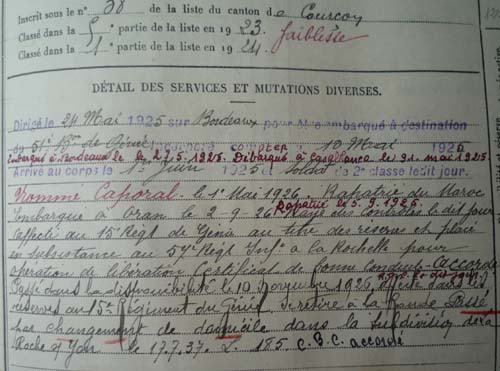 Inscrit sous le n° 38 de la liste du canton de Courçon
Classé dans la 5e partie de la liste en 1923. faiblesse
Classé dans la 1e partie de la liste en 1924.
DÉTAIL DES SERVICES ET MUTATIONS DIVERSES.
Dirigé le 24 Mai 1925 sur Bordeaux pour être embarqué à destination
du 31e Bon de Génie Incorporé à compter du 10 Mai 1925
Embarqué à Bordeaux le 27.5.1925. Débarqué à Casablanca le 31. mai 1925.
Arrivé au corps le 1er Juin 1925 et soldat de 2e classe ledit jour.
Nommé Caporal le 1er Mai 1926. Rapatrié du Maroc
Rapatrié le 3.9.1926.
Embarqué à Oran le 2-9-26 Rayé des contrôles le dit jour
affecté au 15e Régt de Génie au titre des réserves et placé
en subsistance au 57e Régt Infie à la Rochelle pour
opération de libération Certificat de bonne conduite Accordé
Passé dans la disponibilité le 10 Novembre 1926, dans les
réserves au 15e Régiment du Génie Se retire à la Passé
par changement de domicile dans la subdivision de la
Roche s/ Yon le 17.7.37. L. 185 C.B.C accordé